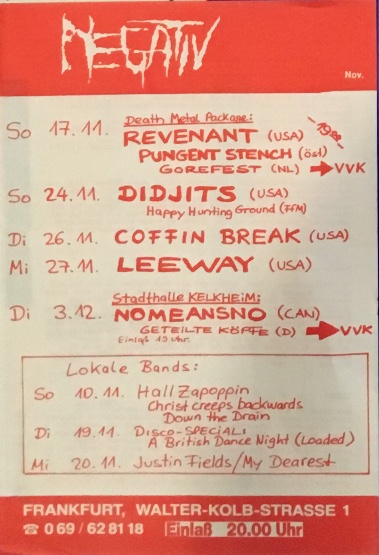 NEGATIV
Nov.
So 17.11. Death Metal Package:
REVENANT (USA)
PUNGENT STENCH (öst)
GOREFEST (NL) → VVK
So 24.11. DIDJITS (USA)
Happy Hunting Ground (FFM)
Di 26.11. COFFIN BREAK (USA)
Mi 27.11. LEEWAY (USA)
Stadthalle KELKHEIM:
Di 3.12. NOMEANSNO (CAN)
GETEILTE KÖPFE (D) → VVK
Einlaß 19 Uhr
Lokale Bands:
So 10.11. Hall Zapoppin
Christ creeps backwards
Down the Drain
Di 19.11. DISCO-SPECIAL:
A British Dance Night (Loaded)
Mi 20.11. Justin Fields/My Dearest
FRANKFURT, WALTER-KOLB-STRASSE 1
☎ 069/628118 Einlaß 20.00 Uhr